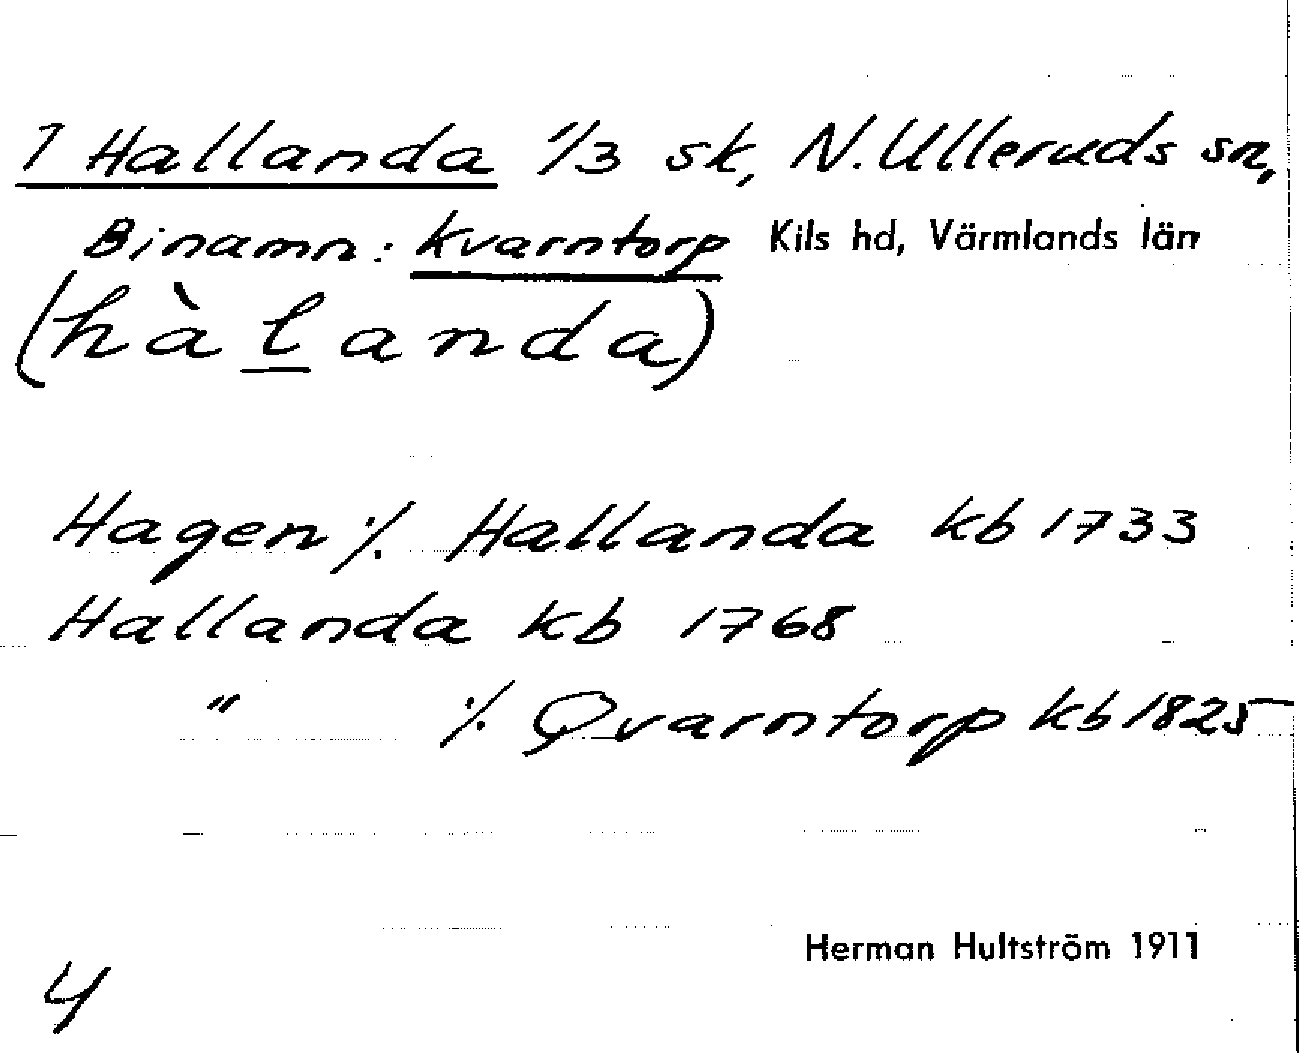 1 Hallanda 1/3 sk, N. Ulleruds sn,
Binamn: Kvarntorp Kils hd, Värmlands län
(hàlanda)
Hagen ⁒ Hallanda kb 1733
Hallanda kb 1768
" ⁒ Qvarntorp kb 1825
Herman Hultström 1911
4